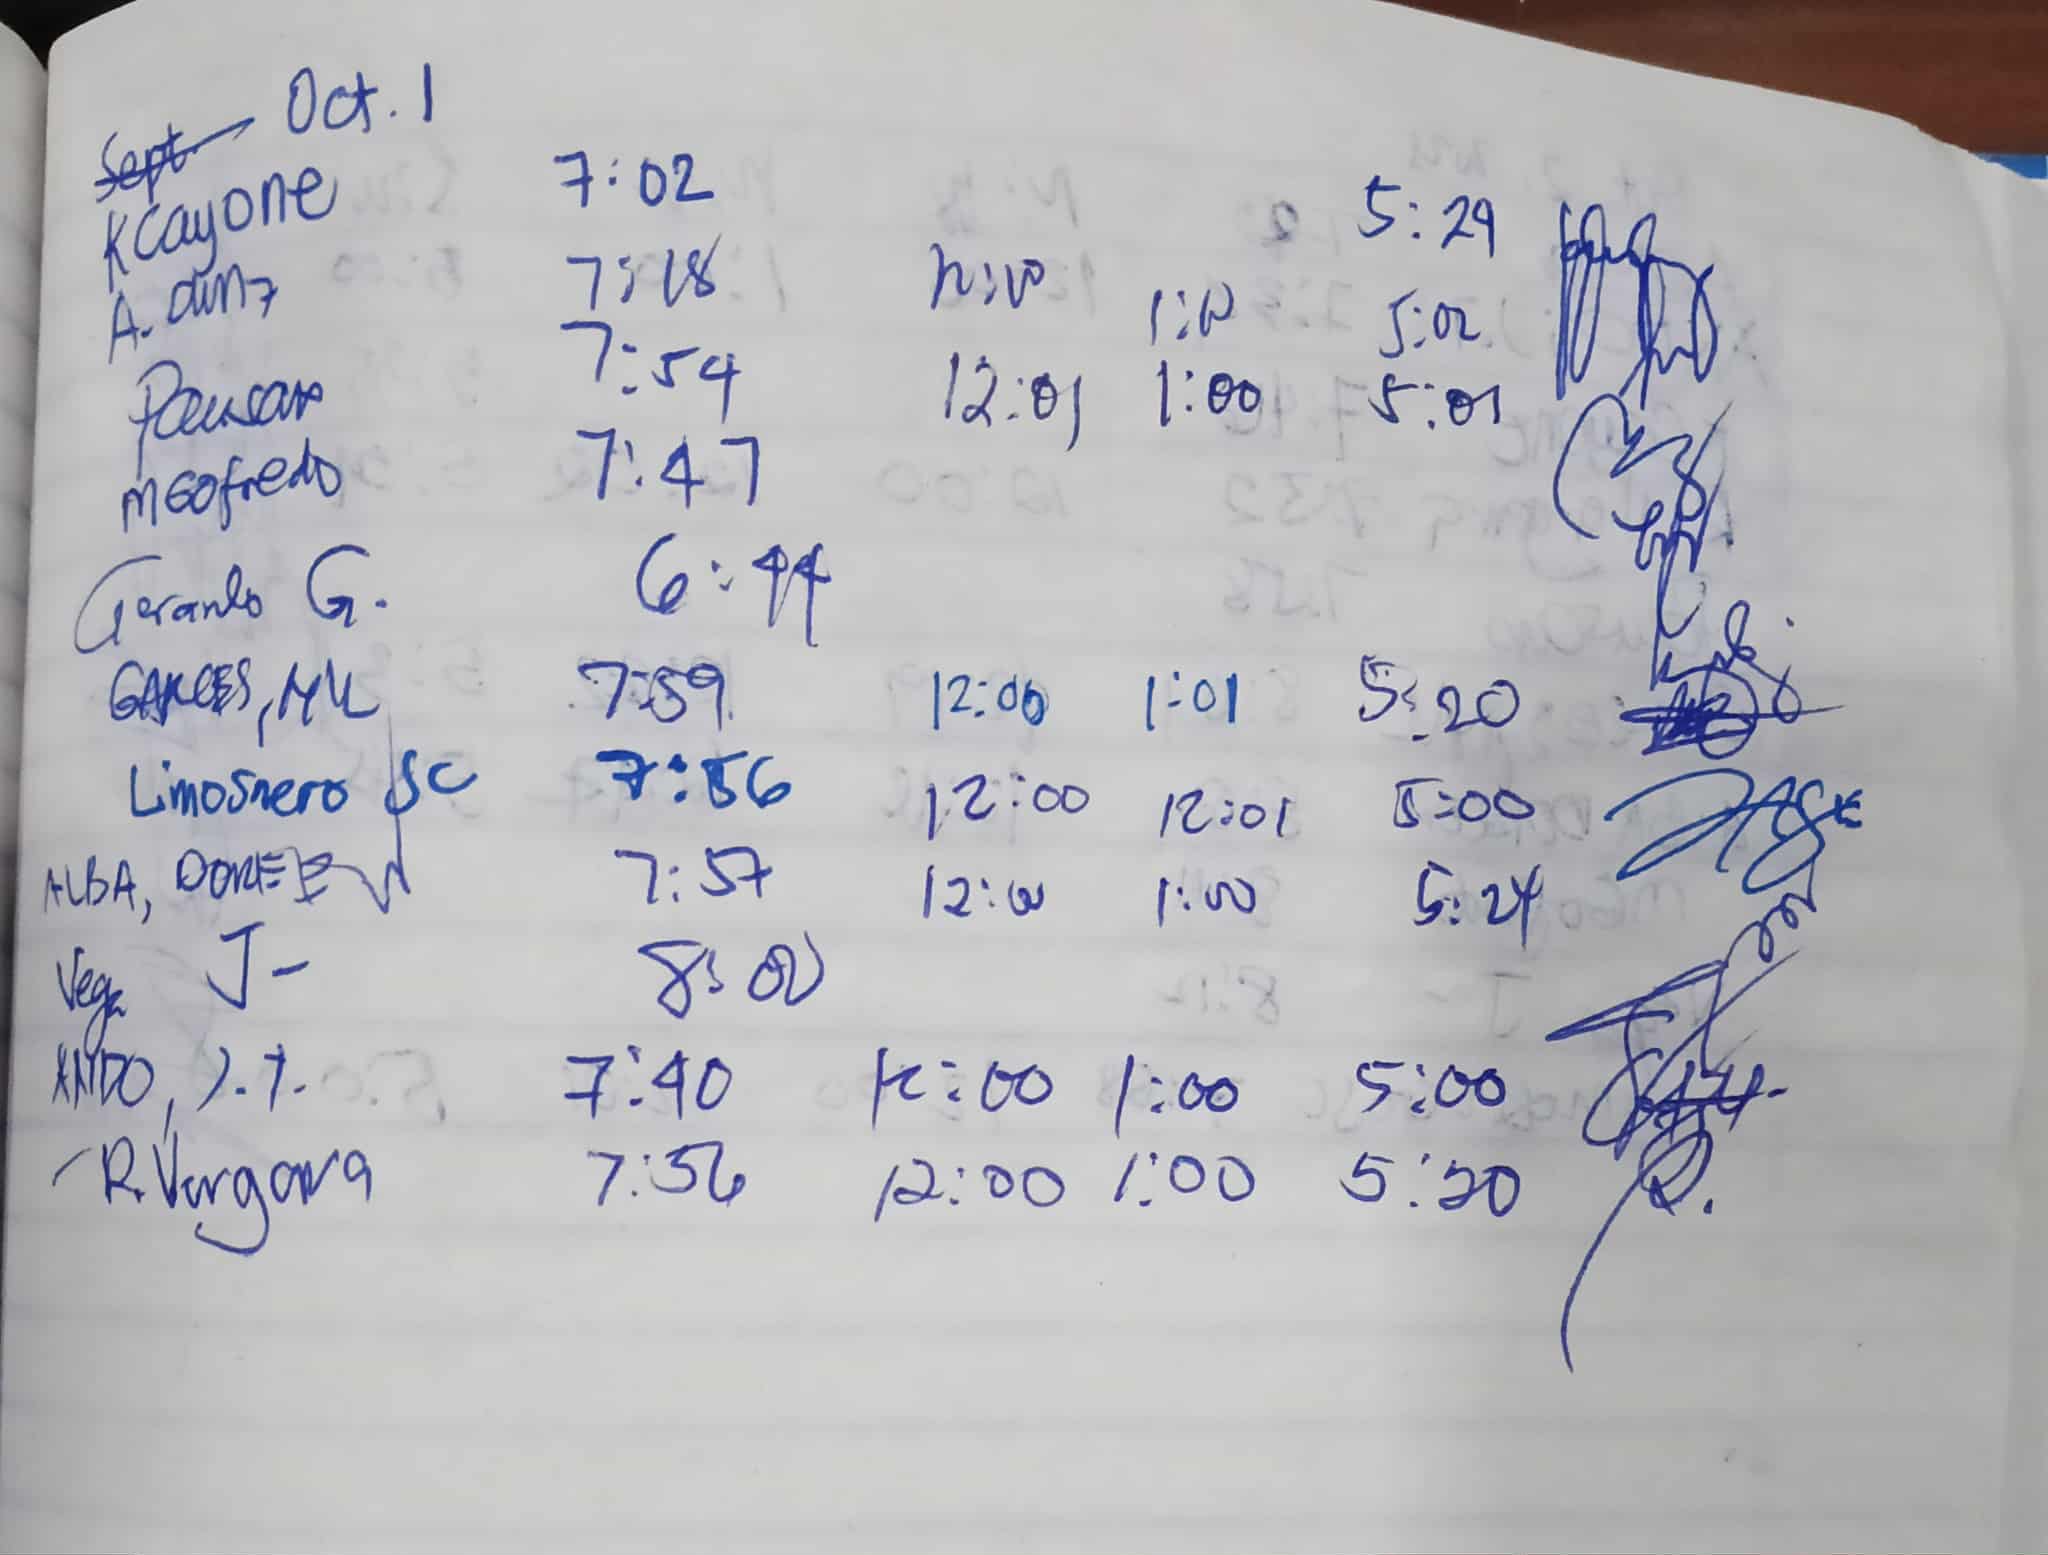 Sept. Oct. 1
KCayone 7:02 5:29
A. 7:18 1:00 5:02
7:54 12:01 1:00 5:01
MGofredo 7:47
Gerardo G. 6:44
GARCES, MK 7:59 12:00 1:01 5:20
Limosnero SC 7:56 12:00 12:01 5:00
ALBA, 7:57 12:00 1:00 5:24
Vega J- 8:00
ANDO, J.T. 7:40 12:00 1:00 5:00
R. Vergara 7:56 12:00 1:00 5:20